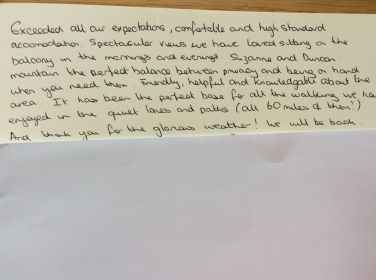 Exceeded all our expectations, comfortable and high standard
accomodation. Spectacular views we have loved sitting on the
balcony in the mornings and evenings. Suzanne and Duncan
maintain the perfect balance between privacy and being on hand
when you need them. Friendly, helpful and knowledgable about the
area. It has been the perfect base for all the walking we have
enjoyed in the quiet lanes and paths (all 60 miles of them!)
And thank you for the glorious weather! We will be back.